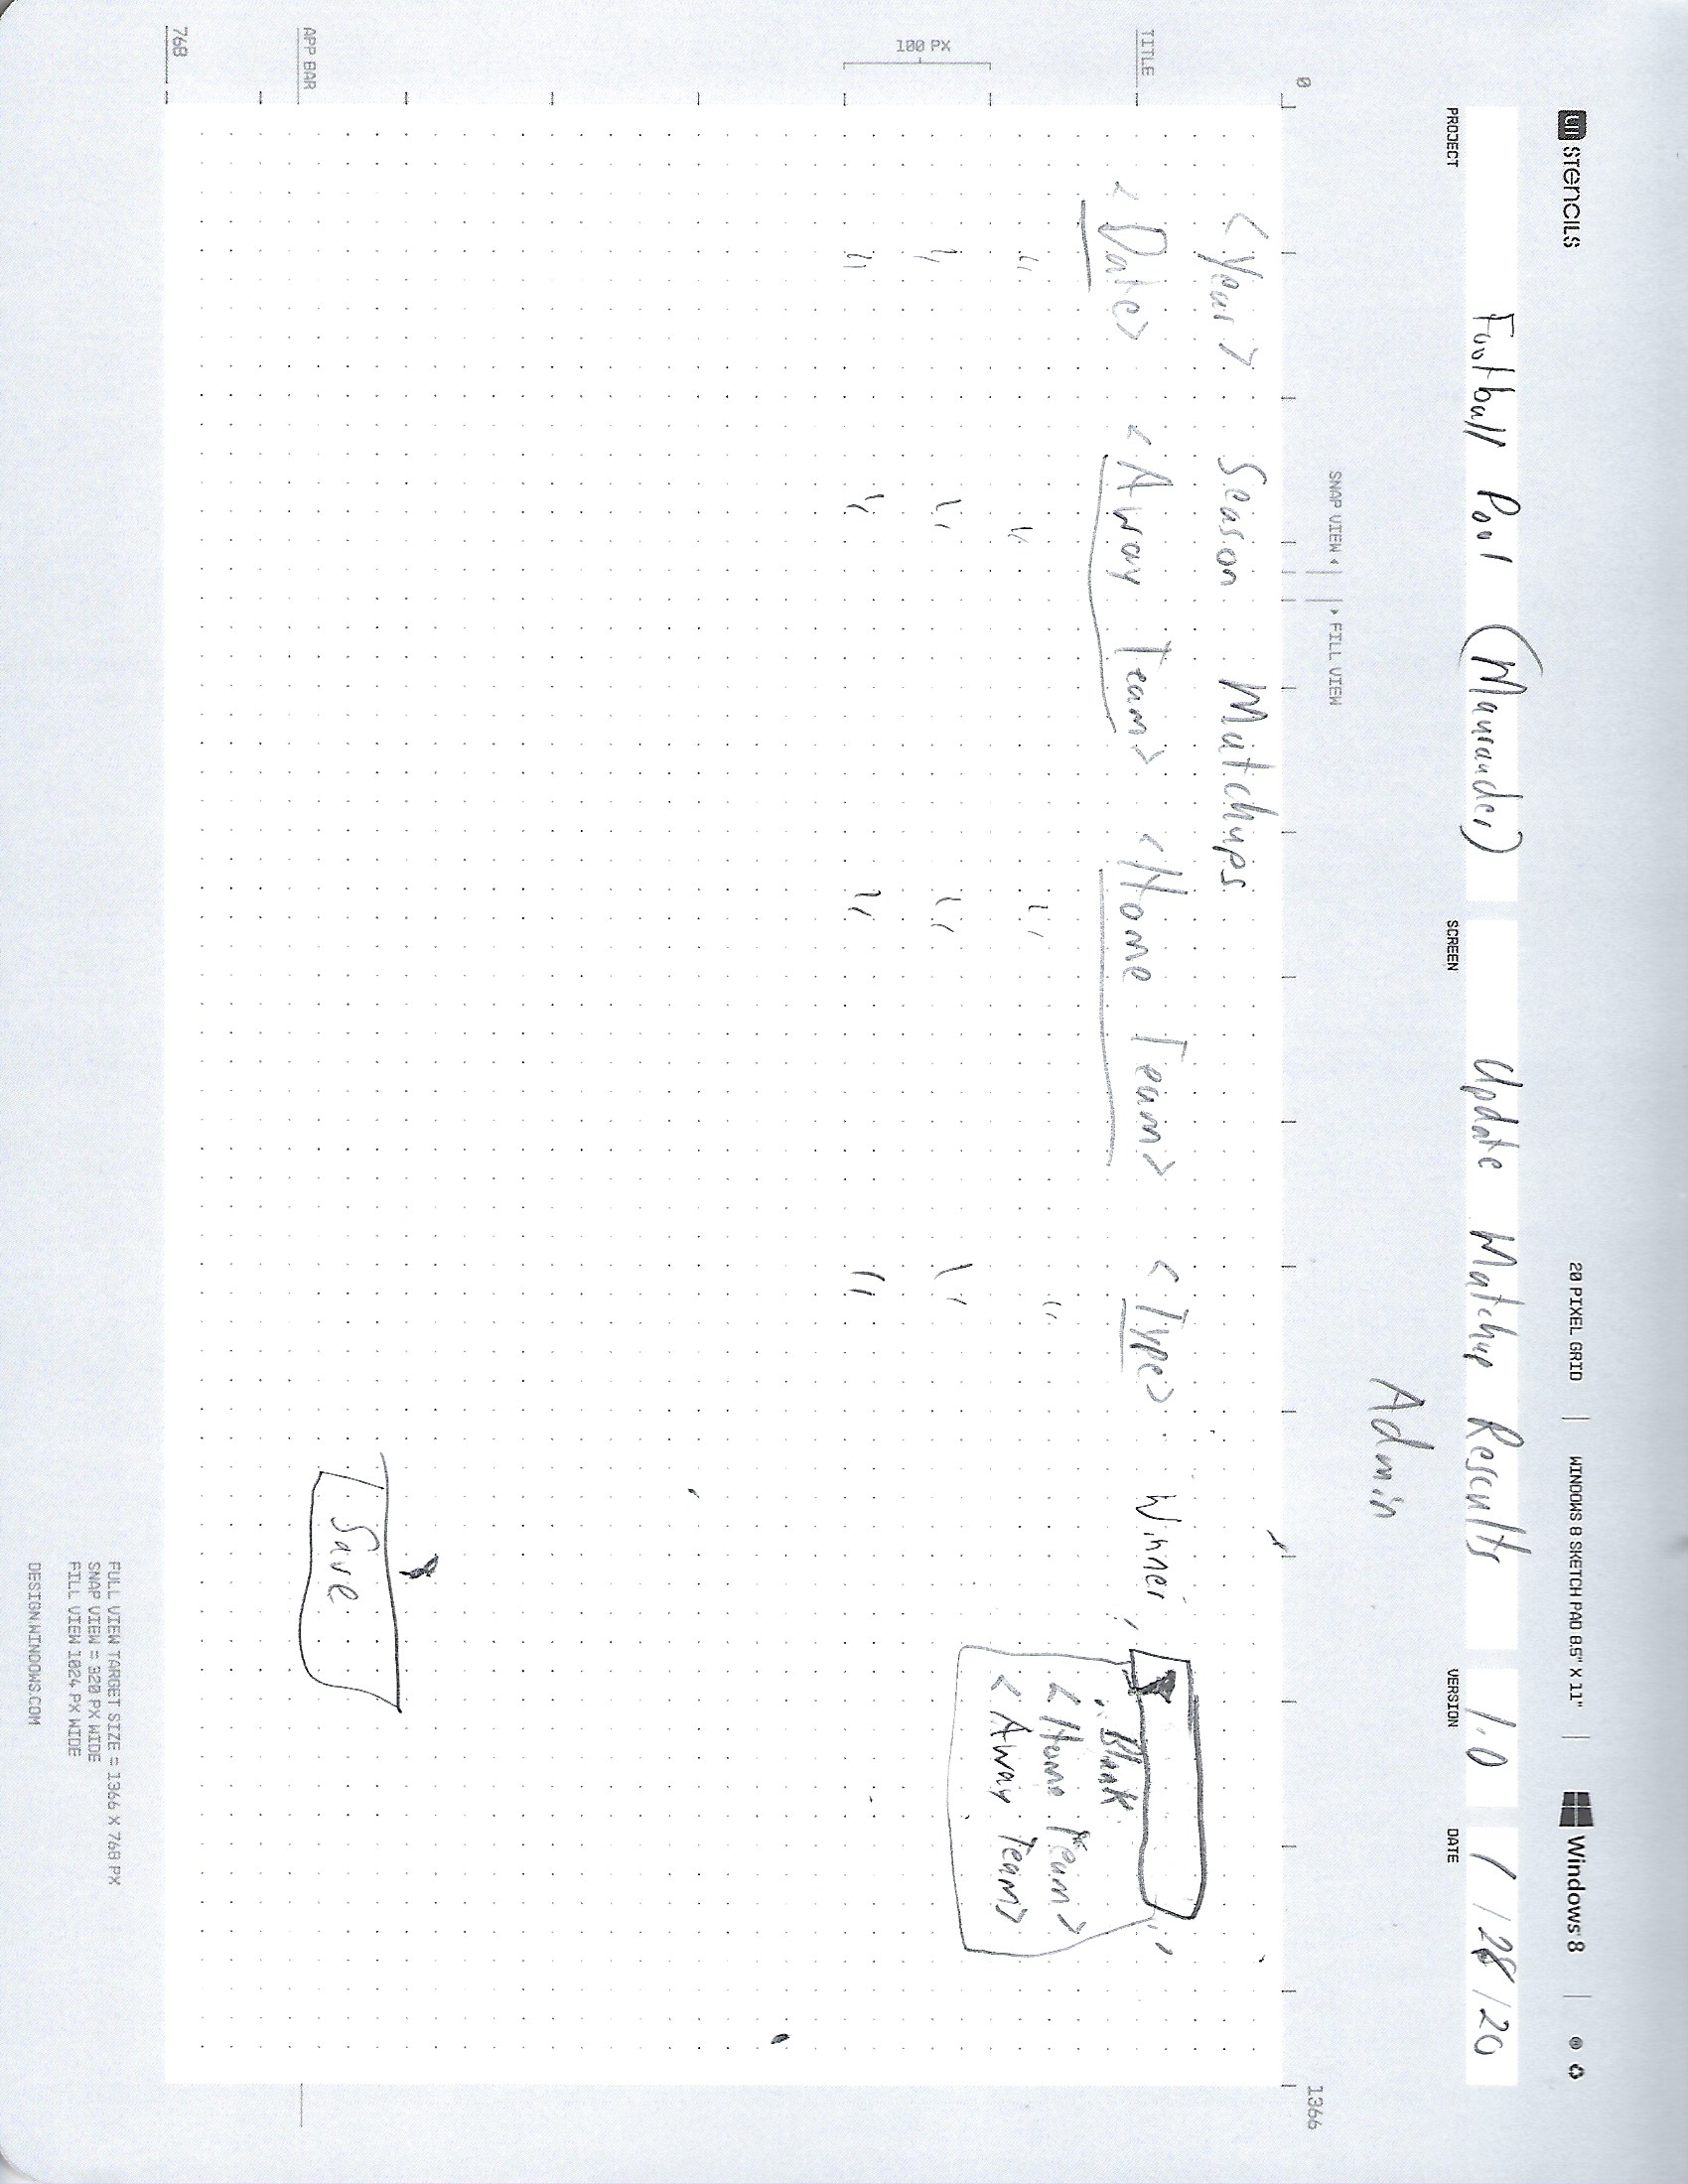 UI STENCILS
20 PIXEL GRID | WINDOWS 8 SKETCH PAD 8.5" X 11" | Windows 8
Football Pool (Maurauder) Update Matchup Rescults 1.0 1/28/20
PROJECT SCREEN VERSION DATE
Admin
SNAP VIEW FILL VIEW
0 1366
<Year> Season Matchups
TITLE
<Date> <Away Team> <Home Team> <Type> Winner
Blank
<Home Team>
<Away Team>
" " " "
" " " "
" " " "
100 PX
Save
APP BAR
768
FULL VIEW TARGET SIZE = 1366 X 768 PX
SNAP VIEW = 320 PX WIDE
FILL VIEW 1024 PX WIDE
DESIGN.WINDOWS.COM